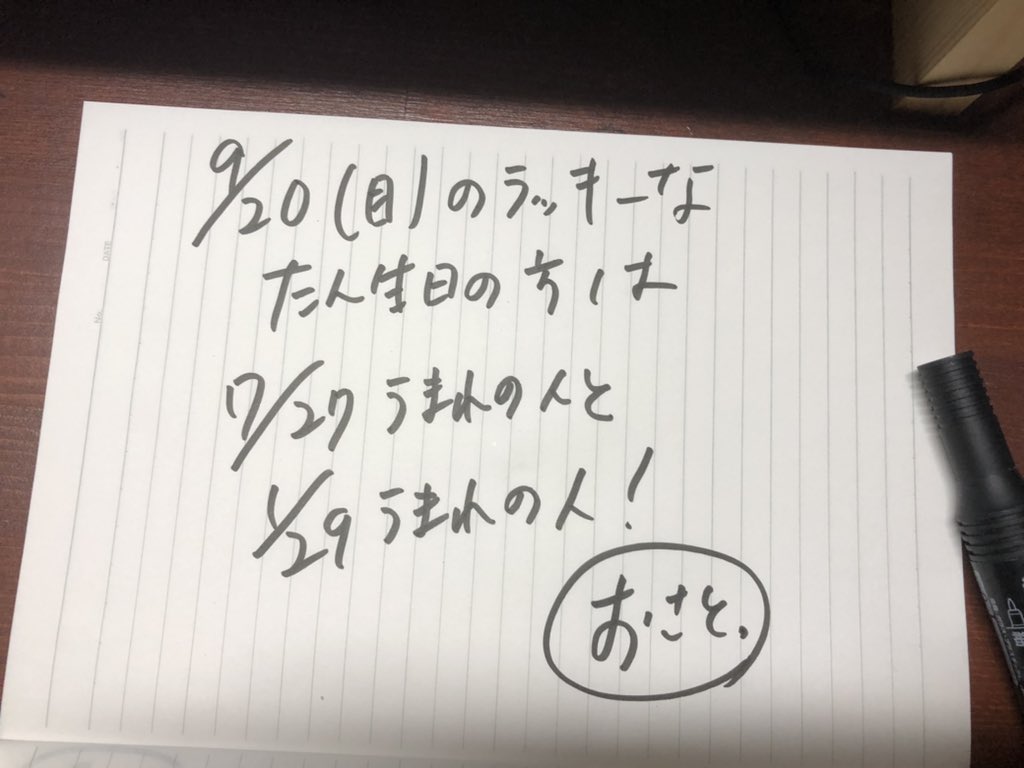 9/20(日)のラッキーな
たん生日の方は
7/27うまれの人と
1/29うまれの人!
おさと.
DATE
No.